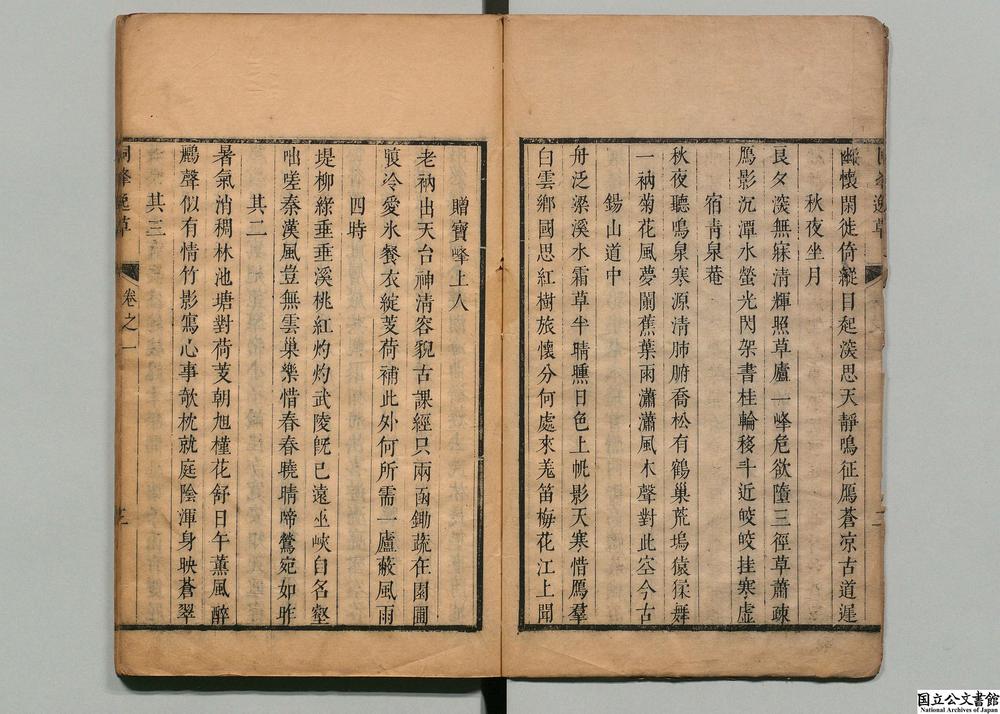 幽懷閑徙倚縱目起淡思天靜鳴征鴈蒼凉古道遲
秋夜坐月
良夕淡無寐清輝照草廬一峰危欲墮三徑草蕭疎
鴈影沉潭水螢光閃架書桂輪移斗近皎皎挂寒虛
宿青泉菴
秋夜聽鳴泉寒源清肺腑喬松有鶴巢荒塢猿猱舞
一衲菊花風夢闌蕉葉雨瀟瀟風木聲對此空今古
錫山道中
舟泛梁溪水霜草半晴曛日色上帆影天寒惜鴈羣
白雲鄉國思紅樹旅懷分何處來羗笛梅花江上聞
贈寶峰上人
老衲出天台神清容貌古課經只兩函鋤蔬在園圃
飯冷愛氷餐衣綻芰荷補此外何所需一廬蔽風雨
四時
堤柳綠垂垂溪桃紅灼灼武陵旣已遠巫峽自名壑
咄嗟秦漢風豈無雲巢樂惜春春曉晴啼鶯宛如昨
其二
暑氣消稠林池塘對荷芰朝旭槿花舒日午薰風醉
鷗聲似有情竹影寫心事欹枕就庭陰渾身映蒼翠
其三
峰逸草
卷之一
国立公文書館
National Archives of Japan